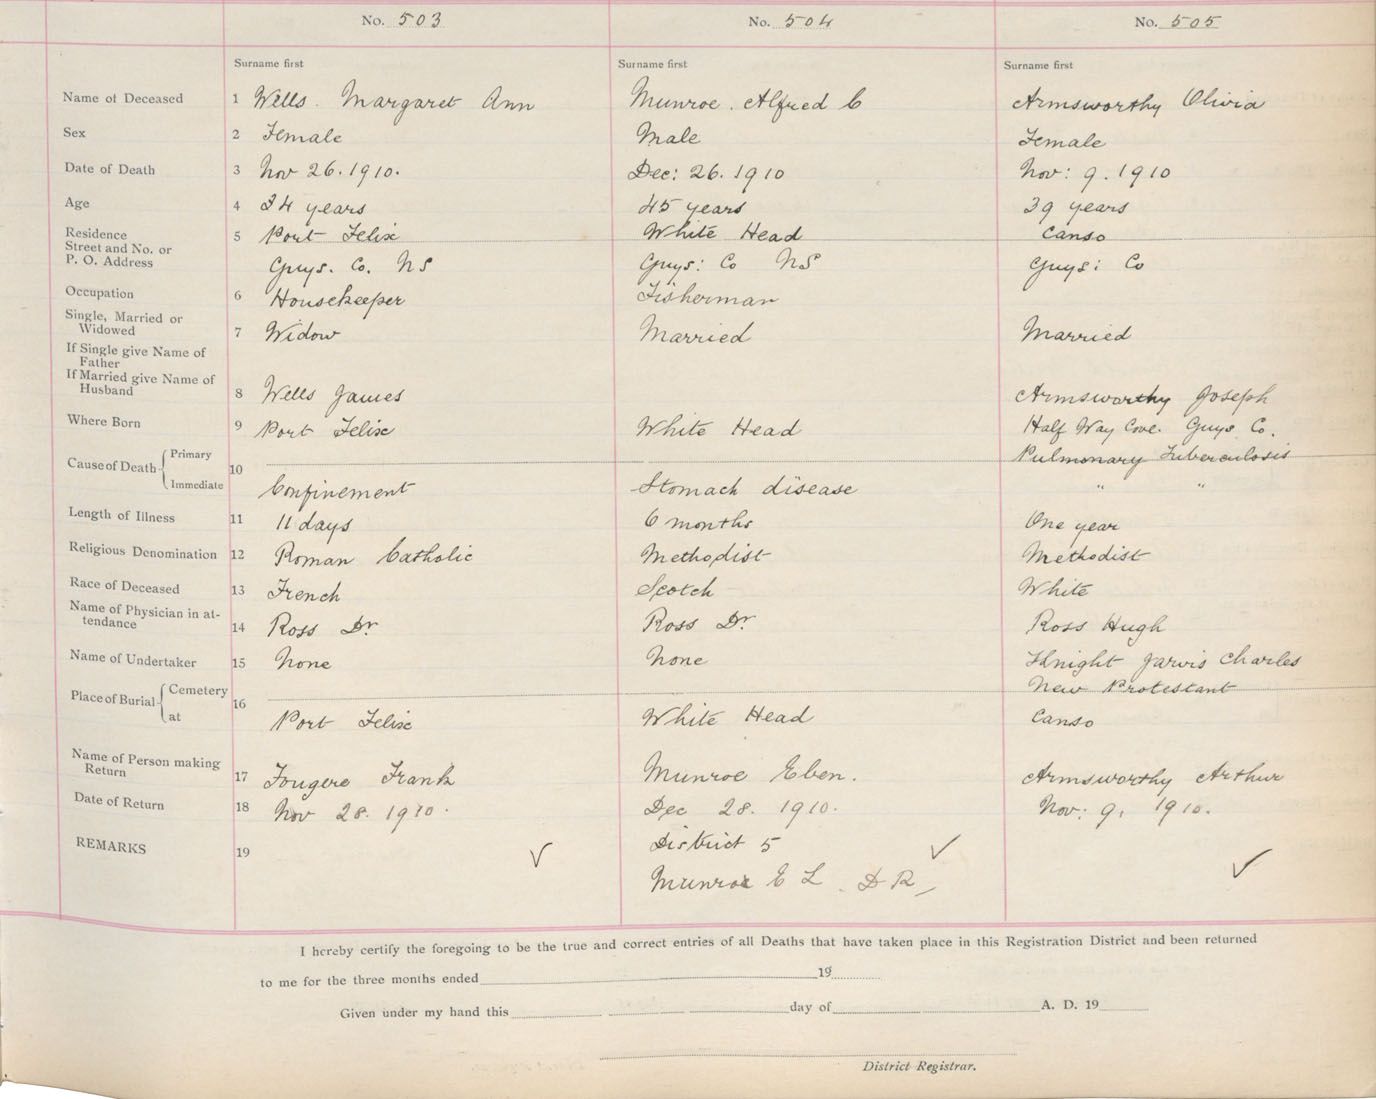 No. 503 No. 504 No. 505
Surname first Surname first Surname first
Name of Deceased 1 Wells. Margaret Ann Munroe. Alfred C Armsworthy Olivia
Sex 2 Female Male Female
Date of Death 3 Nov 26. 1910. Dec: 26. 1910 Nov: 9. 1910
Age 4 34 years 45 years 39 years
Residence 5 Port Felix White Head Canso
Street and No. or
P. O. Address Guys. Co. NS Guys: Co NS Guys: Co
Occupation 6 Housekeeper Fisherman
Single, Married or
Widowed 7 Widow Married Married
If Single give Name of
Father
If Married give Name of
Husband 8 Wells James Armsworthy Joseph
Where Born 9 Port Felix White Head Half Way Cove. Guys Co.
Cause of Death Primary 10 Pulmonary Tuberculosis
Immediate Confinement Stomach disease " "
Length of Illness 11 11 days 6 months One year
Religious Denomination 12 Roman Catholic Methodist Methodist
Race of Deceased 13 French Scotch White
Name of Physician in at-
tendance 14 Ross Dr. Ross Dr. Ross Hugh
Name of Undertaker 15 None None Knight Jarvis Charles
Place of Burial Cemetery 16 New Protestant
at Port Felix White Head Canso
Name of Person making
Return 17 Fougere Frank Munroe Eben. Armsworthy Arthur
Date of Return 18 Nov 28. 1910. Dec 28. 1910. Nov: 9. 1910.
REMARKS 19 District 5
Munroe E L. D R
I hereby certify the foregoing to be the true and correct entries of all Deaths that have taken place in this Registration District and been returned
to me for the three months ended 19
Given under my hand this day of A. D. 19
District Registrar.